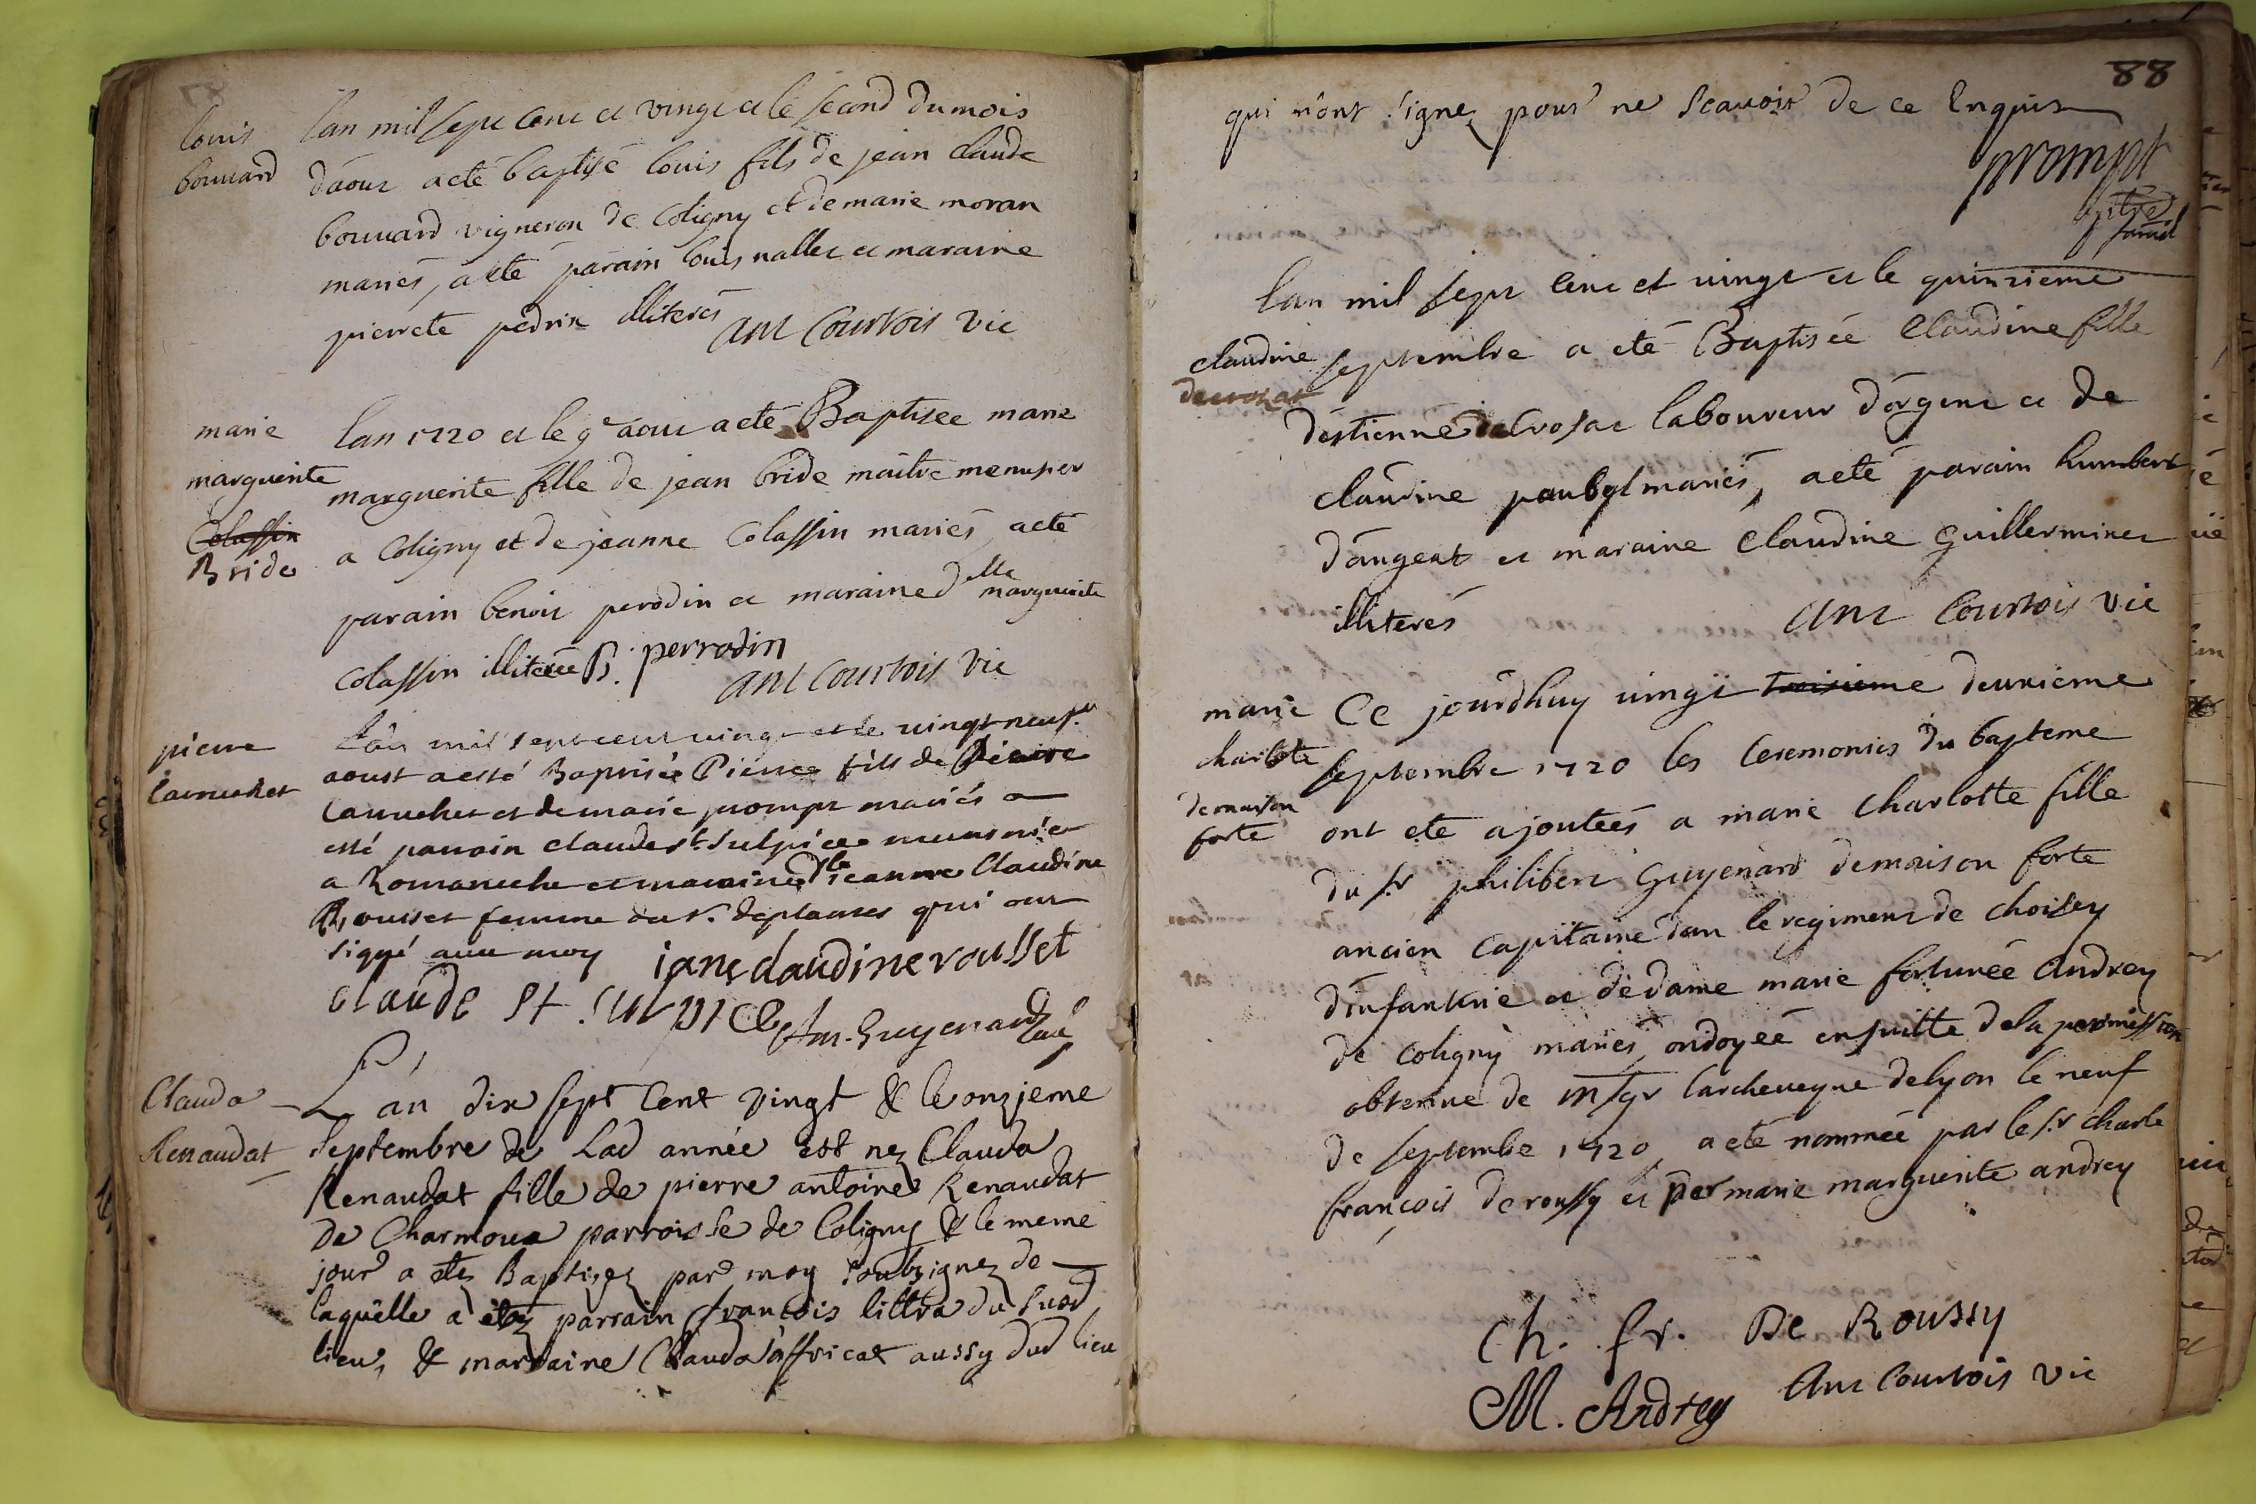 louis
bouuard
lan mil sept cent et vingt et le second du mois
d'aout a eté baptisé louis fils de jean claude
bouuard vigneron de Coligny et de marie moran
mariés, a eté parain louis nallet et maraine
pierrete pedrix illiterés
Ant Courtois vic
marie
marguerite
Colassin
Bride
lan 1720 et le 9e aout a eté Baptisée marie
marguerite fille de jean bride maitre menusier
a Coligny et de jeanne Colassin mariés, a eté
parain benoit perodin et maraine dlle marguerite
Colassin illiterée B. perrodin
Ant Courtois vic
pierre
Cannechet
L'an mil sept cent vingt et le vingt neuf
aoust a esté Baptisée Pierre fils de Pierre
et de marie prompt mariés a
esté parrain claude st. sulpice meusnier
a Romaneche et maraine dlle jeanne Claudine
Rousset femme du sr. deplantes qui ont
signé avec moy
iane claudine rousset
claude st. sulpice
Am. Guyenard Curé
Clauda
Renaudat
L'an dix sept Cent vingt & le onzieme
Septembre de Lad année est nez Clauda
Renaudat fille de pierre antoine Renaudat
De Charmoux parroisse de Coligny & le meme
jour a etez Baptizez par moy soubzignez de
laquelle a etez parrain francois littra du susd
lieu, & marraine Clauda affricat aussy dud lieu
88
qui n'ont signez pour ne scavoir de ce Enquis
prompt
ptre
claudine
decrozat
lan mil sept cent et vingt et le quinzieme
septembre a eté Baptisée Claudine fille
d'estienne decrosat laboureur d'orgent et de
claudine paubel mariés, a eté parain humbert
d'angeat et maraine Claudine Guillerminet
illiterés
Ant Courtois vic
marie
charlotte
de maison
forte
Ce jourdhuy vingt troisieme deuxieme
septembre 1720 les Ceremonies du bapteme
ont eté ajoutées a marie charlotte fille
du sr philibert Guyenard demaison forte
ancien capitaine dan le regiment de choisey
d'infanterie et de dame marie fortunée Andrey
de coligny mariés, ondoyée ensuitte de la permission
obtenue de Msgr larcheveque de lyon le neuf
de septembre 1720, a eté nommée par le sr charle
françois de roussy et par marie marguerite andrey
Ch. fr. De Roussy
M. Andrey
Ant Courtois vic